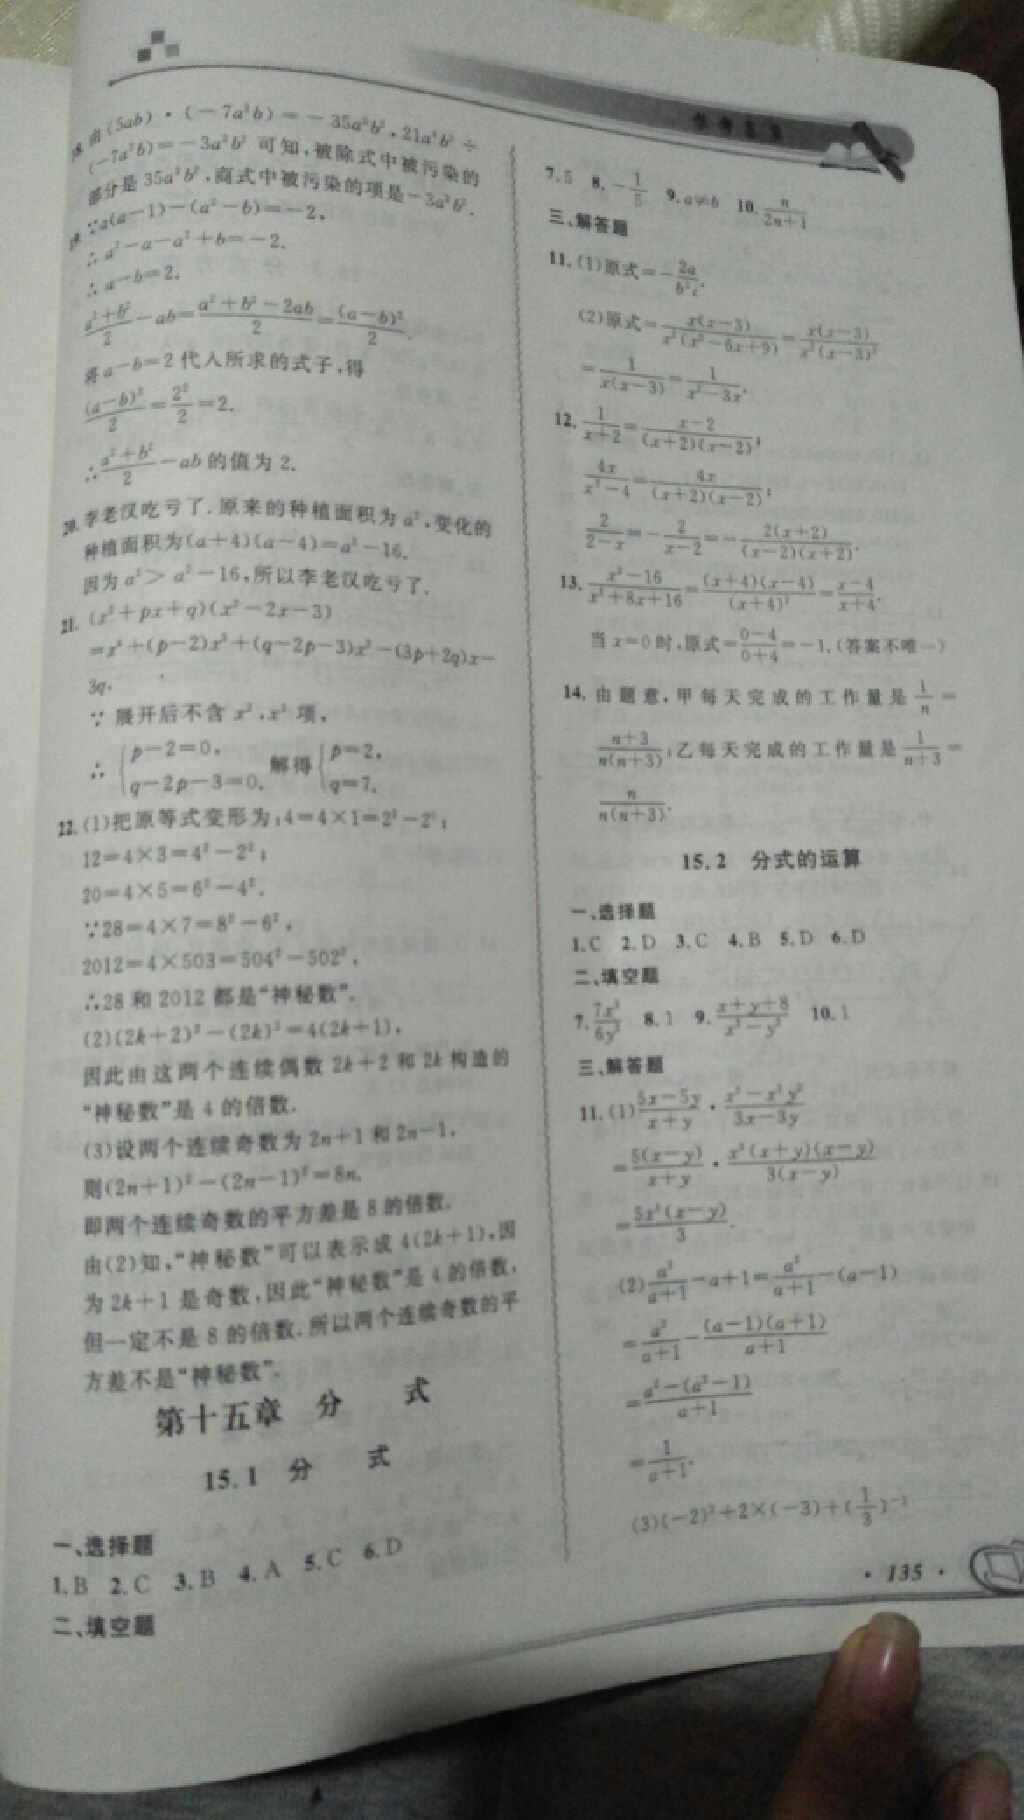 参考答案
18. 由(5ab)·(-7a²b)=-35a³b²,21a⁴b³÷
(-7a²b)=-3a²b² 可知,被除式中被污染的
部分是 35a³b²,商式中被污染的项是-3a²b².
19. ∵a(a-1)-(a²-b)=-2,
∴a²-a-a²+b=-2.
∴a-b=2.
(a²+b²)/2-ab=(a²+b²-2ab)/2=(a-b)²/2.
将 a-b=2 代入所求的式子,得
(a-b)²/2=2²/2=2.
∴(a²+b²)/2-ab 的值为 2.
20. 李老汉吃亏了. 原来的种植面积为 a²,变化的
种植面积为(a+4)(a-4)=a²-16.
因为 a²> a²-16,所以李老汉吃亏了.
21. (x²+px+q)(x²-2x-3)
=x⁴+(p-2)x³+(q-2p-3)x²-(3p+2q)x-
3q.
∵ 展开后不含 x²,x³ 项,
∴ {p-2=0, q-2p-3=0. 解得{p=2, q=7.
22. (1)把原等式变形为:4=4×1=2²-0²;
12=4×3=4²-2²;
20=4×5=6²-4².
∵28=4×7=8²-6²,
2012=4×503=504²-502²,
∴28 和 2012 都是“神秘数”.
(2)(2k+2)²-(2k)²=4(2k+1),
因此由这两个连续偶数 2k+2 和 2k 构造的
“神秘数”是 4 的倍数.
(3)设两个连续奇数为 2n+1 和 2n-1,
则(2n+1)²-(2n-1)²=8n.
即两个连续奇数的平方差是 8 的倍数.
由(2)知,“神秘数”可以表示成 4(2k+1),因
为 2k+1 是奇数,因此“神秘数”是 4 的倍数,
但一定不是 8 的倍数.所以两个连续奇数的平
方差不是“神秘数”.
第十五章 分 式
15.1 分 式
一、选择题
1.B 2.C 3.B 4.A 5.C 6.D
二、填空题
7.5 8.-1/5 9.a≠b 10.n/(2n+1)
三、解答题
11.(1)原式=-2a/(b²c).
(2)原式=x(x-3)/(x²(x²-6x+9))=x(x-3)/(x²(x-3)²)
=1/(x(x-3))=1/(x²-3x).
12. 1/(x+2)=(x-2)/((x+2)(x-2));
4x/(x²-4)=4x/((x+2)(x-2));
2/(2-x)=-2/(x-2)=-2(x+2)/((x-2)(x+2)).
13. (x²-16)/(x²+8x+16)=(x+4)(x-4)/(x+4)²=(x-4)/(x+4).
当 x=0 时,原式=(0-4)/(0+4)=-1.(答案不唯一)
14. 由题意,甲每天完成的工作量是 1/n=
(n+3)/(n(n+3));乙每天完成的工作量是 1/(n+3)=
n/(n(n+3)).
15.2 分式的运算
一、选择题
1.C 2.D 3.C 4.B 5.D 6.D
二、填空题
7.7x³/6y³ 8.1 9.(x+y+8)/(x²-y²) 10.1
三、解答题
11.(1)(5x-5y)/(x+y)·(x⁴-x²y²)/(3x-3y)
=5(x-y)/(x+y)·x²(x+y)(x-y)/(3(x-y))
=5x²(x-y)/3.
(2)a²/(a+1)-a+1=a²/(a+1)-(a-1)
=a²/(a+1)-(a-1)(a+1)/(a+1)
=(a²-(a²-1))/(a+1)
=1/(a+1).
(3)(-2)²+2×(-3)+(1/3)⁻¹
·135·